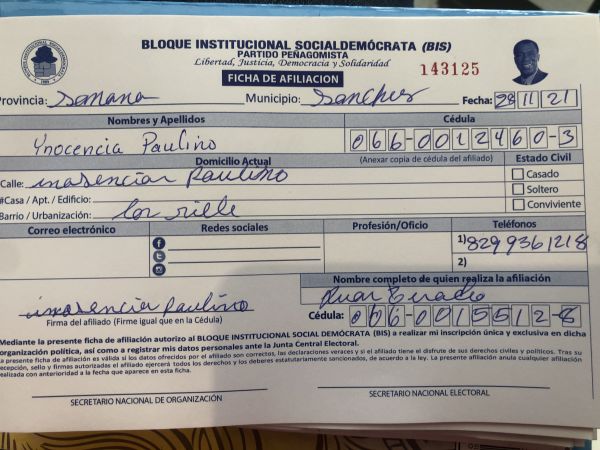 BLOQUE INSTITUCIONAL SOCIALDEMÓCRATA (BIS)
PARTIDO PEÑAGOMISTA
Libertad, Justicia, Democracia y Solidaridad
FICHA DE AFILIACION
143125
Provincia: Samana Municipio: Sanchez Fecha: 28 11 21
Nombres y Apellidos Cédula
Ynocencia Paulino 066-0012460-3
Domicilio Actual (Anexar copia de cédula del afiliado) Estado Civil
Calle: Paulino Casado
#Casa / Apt. / Edificio: Soltero
Barrio / Urbanización: Conviviente
Correo electrónico Redes sociales Profesión/Oficio Teléfonos
1) 8299361218
2)
Nombre completo de quien realiza la afiliación
Juan
paulino Cédula: 066-0015512-8
Firma del afiliado (Firme igual que en la Cédula)
Mediante la presente ficha de afiliación autorizo al BLOQUE INSTITUCIONAL SOCIAL DEMÓCRATA (BIS) a realizar mi inscripción única y exclusiva en dicha
organización política, así como a registrar mis datos personales ante la Junta Central Electoral.
La presente ficha de afiliación es válida si los datos ofrecidos por el afiliado son correctos, las declaraciones veraces y si el afiliado tiene el disfrute de sus derechos civiles y políticos. Tras su
recepción, sello y firmas autorizadas el afiliado ejercerá todos los derechos y los deberes estatutariamente sancionados, de acuerdo a la ley. La presente afiliación anula cualquier afiliación
realizada con anterioridad a la fecha que aparece en esta ficha.
SECRETARIO NACIONAL DE ORGANIZACIÓN SECRETARIO NACIONAL ELECTORAL